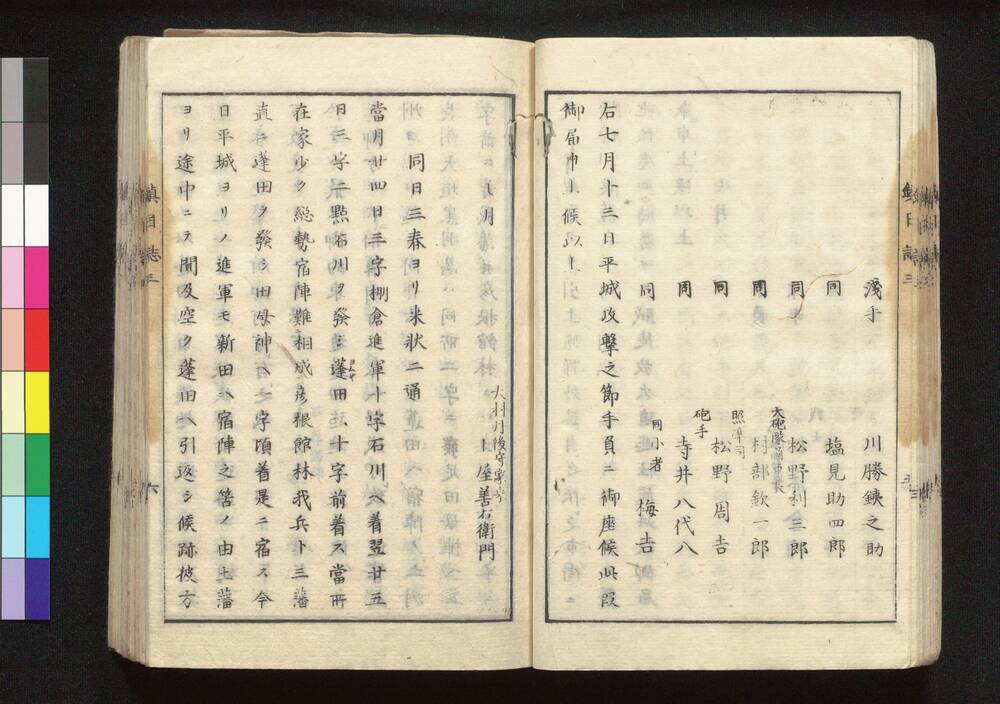 淺手 川勝鐵之助
同 塩見助四郎
同 松野利三郎
同 村部欽一郎
同 照準司 松野周吉
同 砲手 寺井八代八
同 同小者 梅吉
右七月十三日平城攻撃之節手負ニ御座候此段
御届申上候以上
大村丹後守家来
土屋善右衛門
同日三春ヨリ来状ニ通
當月廿四日三字棚倉進軍十字石川ヘ着翌廿五
日三字二點石川ヲ發シ蓬田ヘ十字前着ス當所
在家少ク總勢宿陣難相成彦根館林我兵ト三藩
直ニ蓬田ヲ發シ田母神ヘ二字頃着是ニ宿ス今
日平城ヨリノ進軍モ新田ヘ宿陣之筈ノ由七藩
ヨリ途中ニテ聞及空ク蓬田ヘ引返シ候跡彼方
鎮日誌三
六